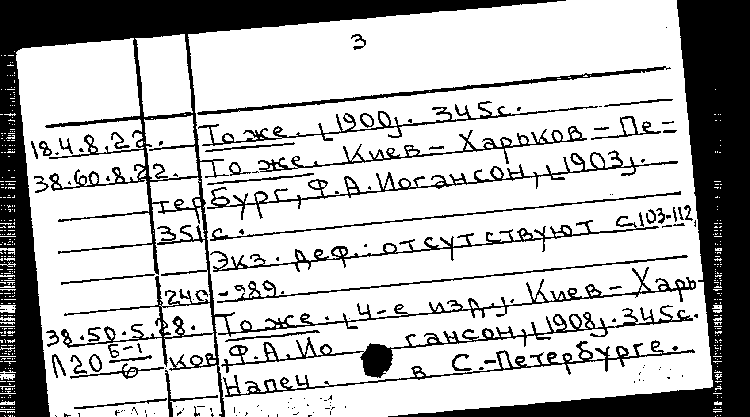 3
18.4.8.22. То же. [1900]. 345с.
38.60.8.22. То же. Киев – Харьков – Пе=
тербург, Ф.А.Иогансон, [1903].
351с.
Экз. деф.: отсутствуют с.103-112,
240-289.
38.50.5.28. То же. [4-е изд.]. Киев – Харь-
Л20 Б-1/6 ков, Ф.А.Иогансон, [1908]. 345с.
Напеч. в С.-Петербурге.